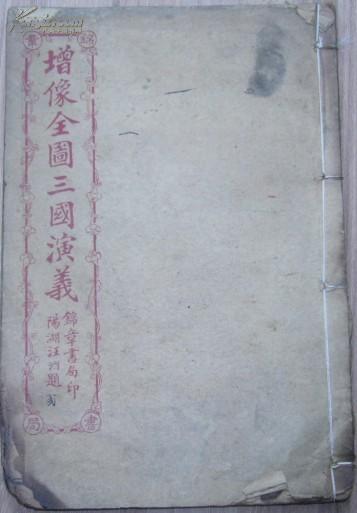 增像全圖三國演義
錦章書局印
陽湖汪洵題
錦章
書局